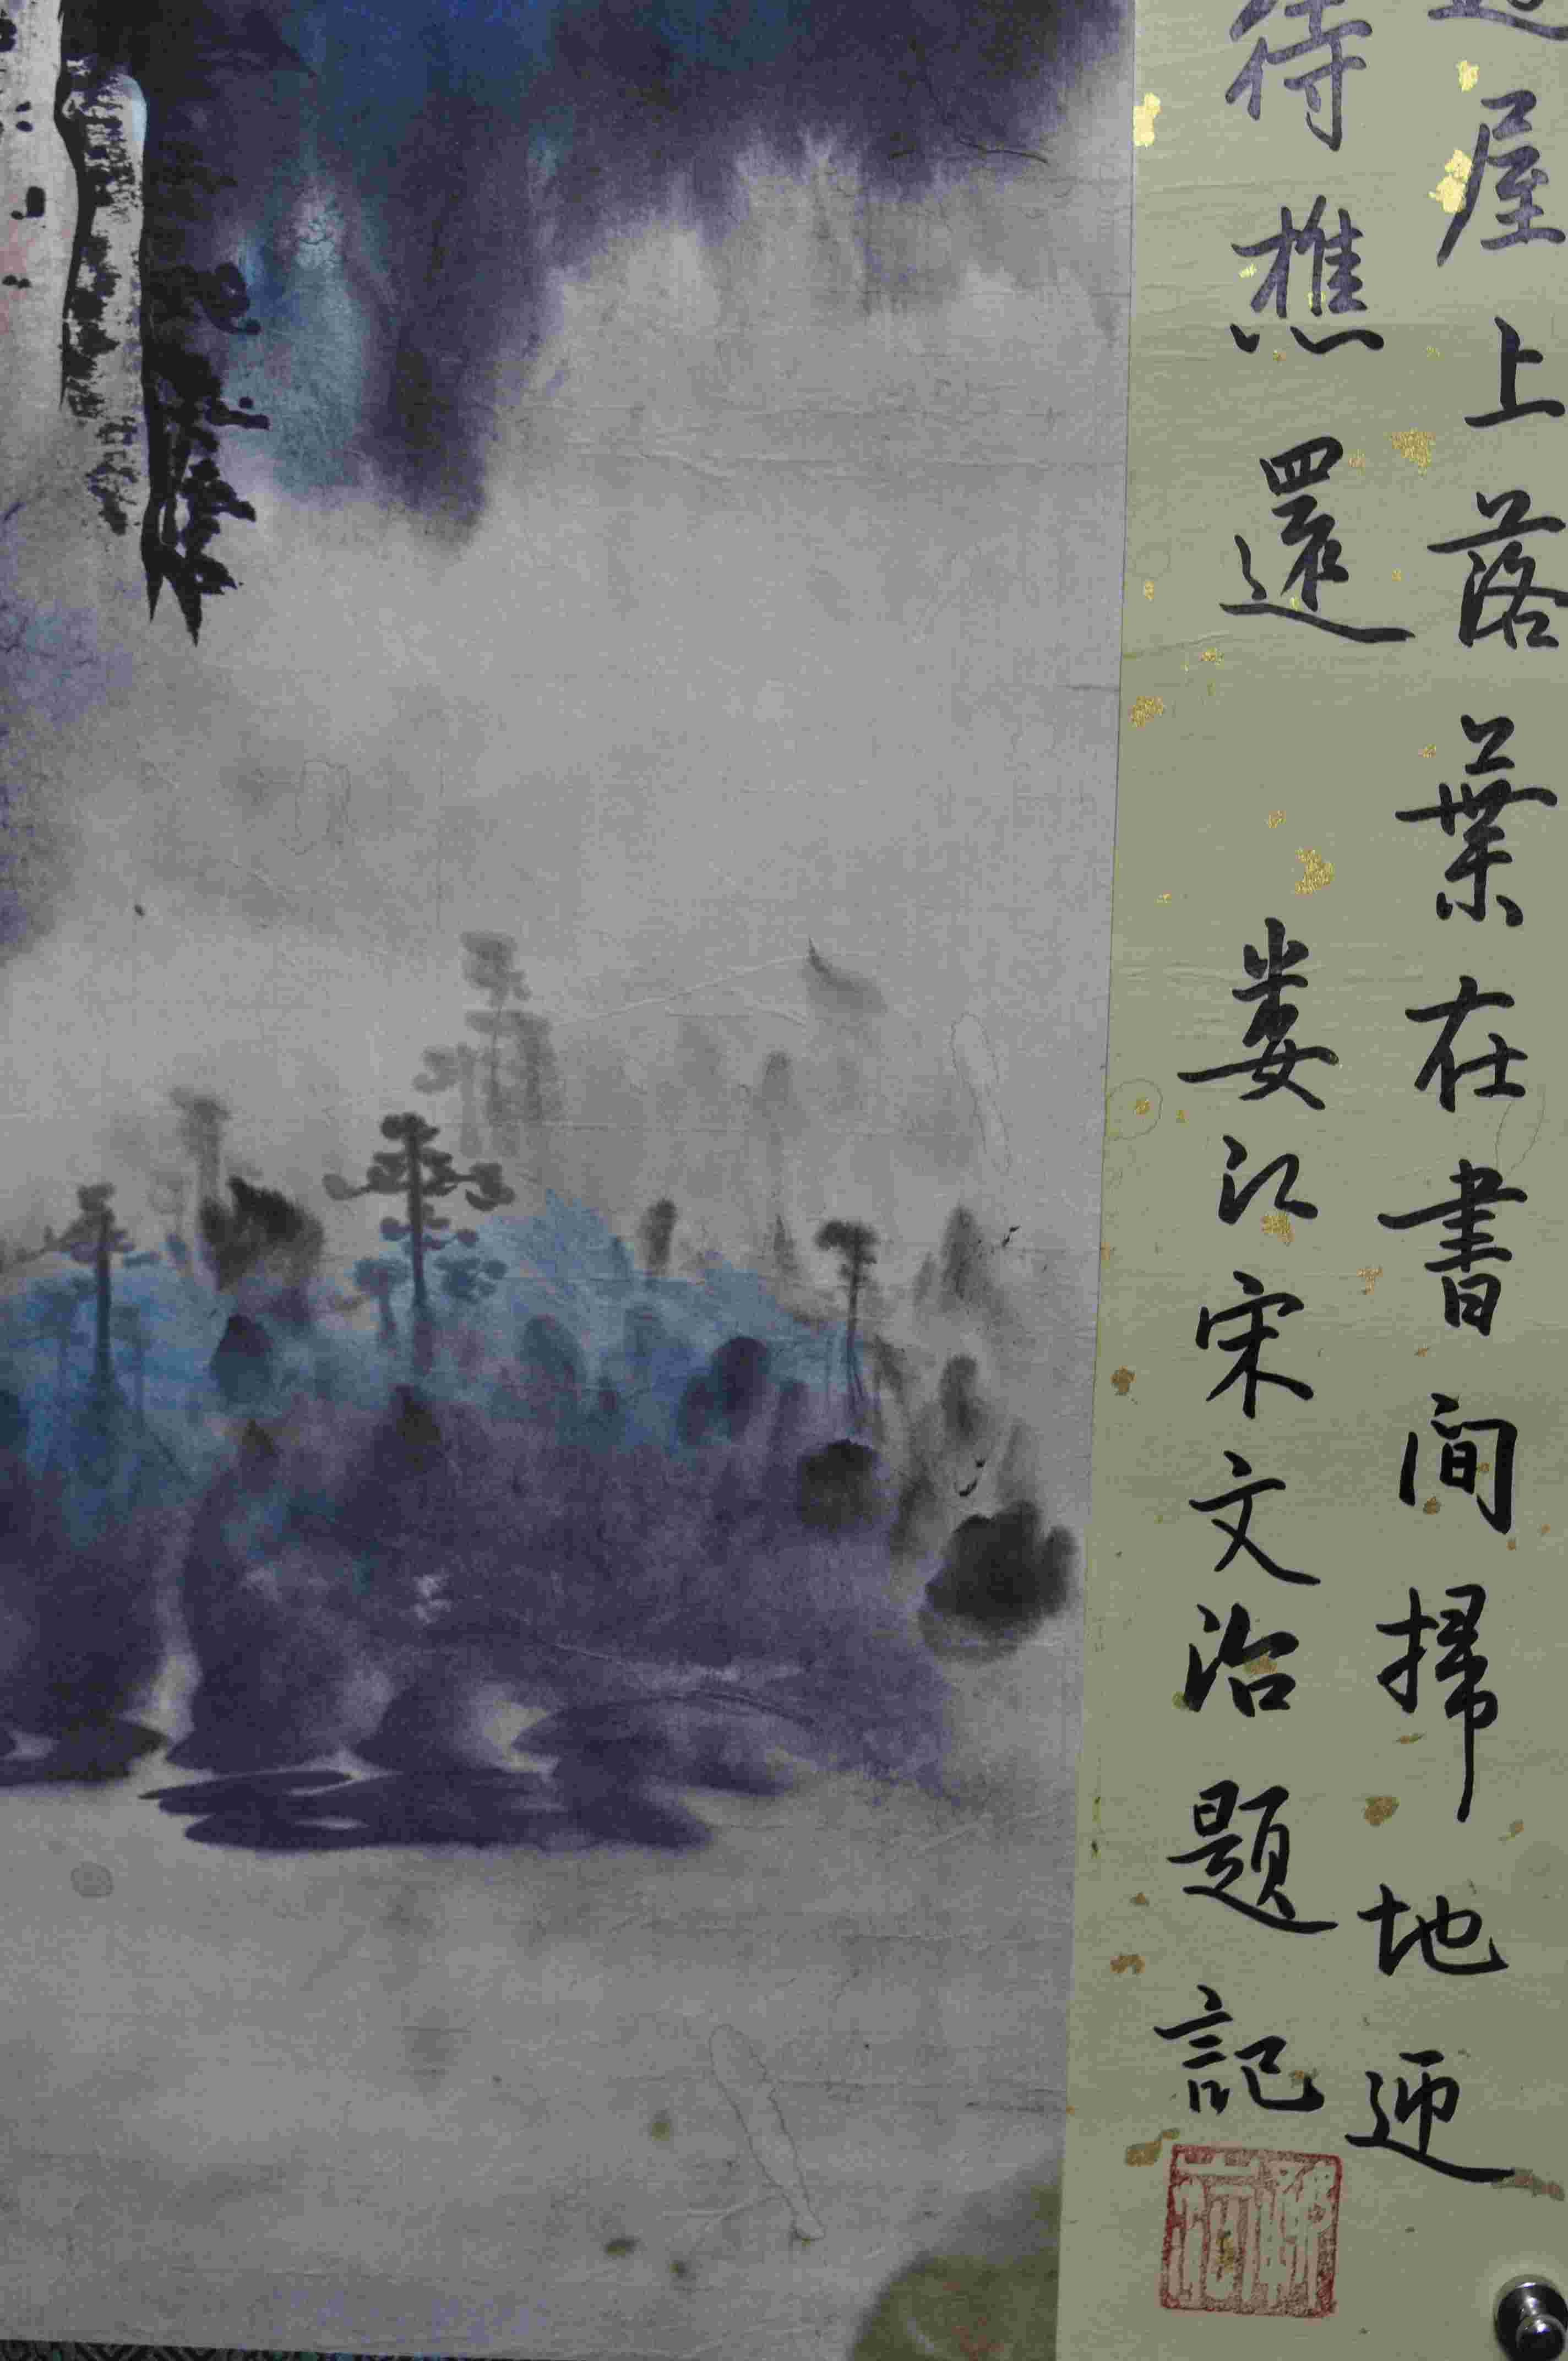 屋上落葉在書間掃地迎
待樵還 婁江宋文治題記